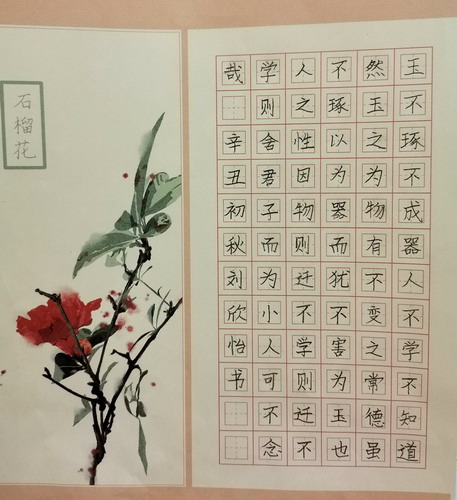 石榴花
玉不琢不成器人不学不知道
然玉之为物有不变之常德虽
不琢以为器而犹不害为玉也
人之性因物则迁不学则迁不
学则舍君子而为小人可不念
哉 辛丑初秋刘欣怡书